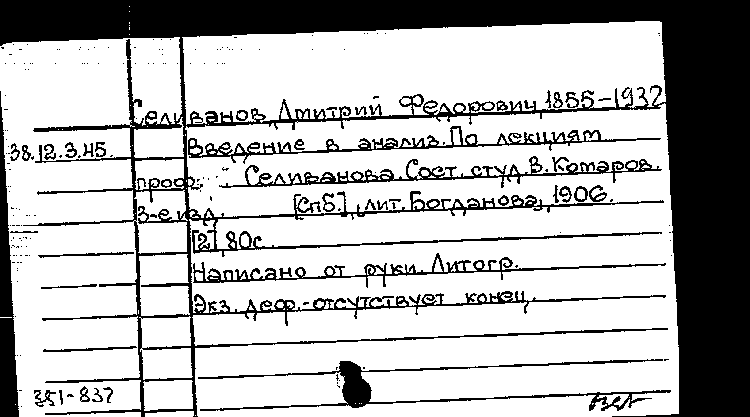 Селиванов, Дмитрий Федорович, 1855-1932
38.12.3.45 Введение в анализ. По лекциям
проф. Селиванова. Сост. студ. В. Комаров.
3-е изд. [Спб.], лит. Богданова, 1906.
[2], 80с.
Написано от руки. Литогр.
Экз. деф.-отсутствует конец.
351-837